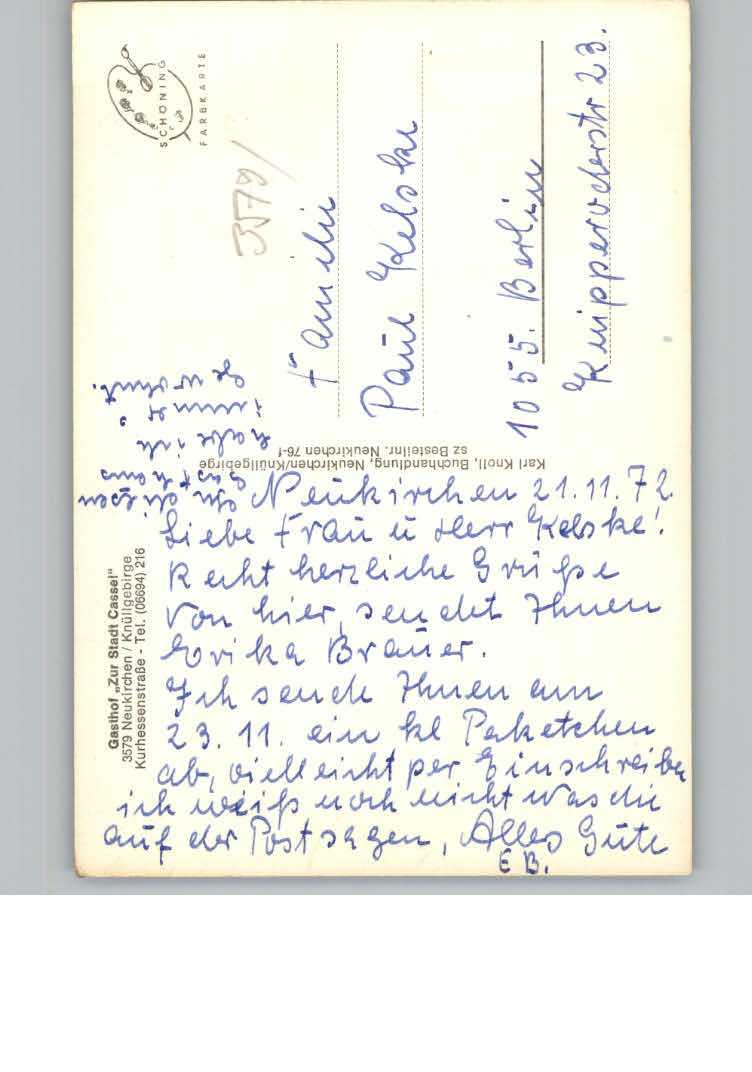 Gasthof „Zur Stadt Cassel"
3579 Neukirchen / Knüllgebirge
Kurhessenstraße - Tel. (06694) 216
Neukirchen 21.11.72.
Liebe Frau u Herr Kelske!
Recht herzliche Grüße
von hier, sendet Ihnen
Erika Brauer.
Ich sende Ihnen am
23. 11. ein kl Paketchen
ab, vielleicht per Einschreiben
ich weiß noch nicht was die
auf der Post sagen, Alles Gute
E B.
In diesen
Gasthaus
habe ich
immer
gewohnt.
Karl Knoll, Buchhandlung, Neukirchen/Knüllgebirge
sz Bestellnr. Neukirchen 76-f
SCHÖNING
FARBKARTE
3579/
Familie
Paul Kelske
1055. Berlin
Kniproderstr 23.